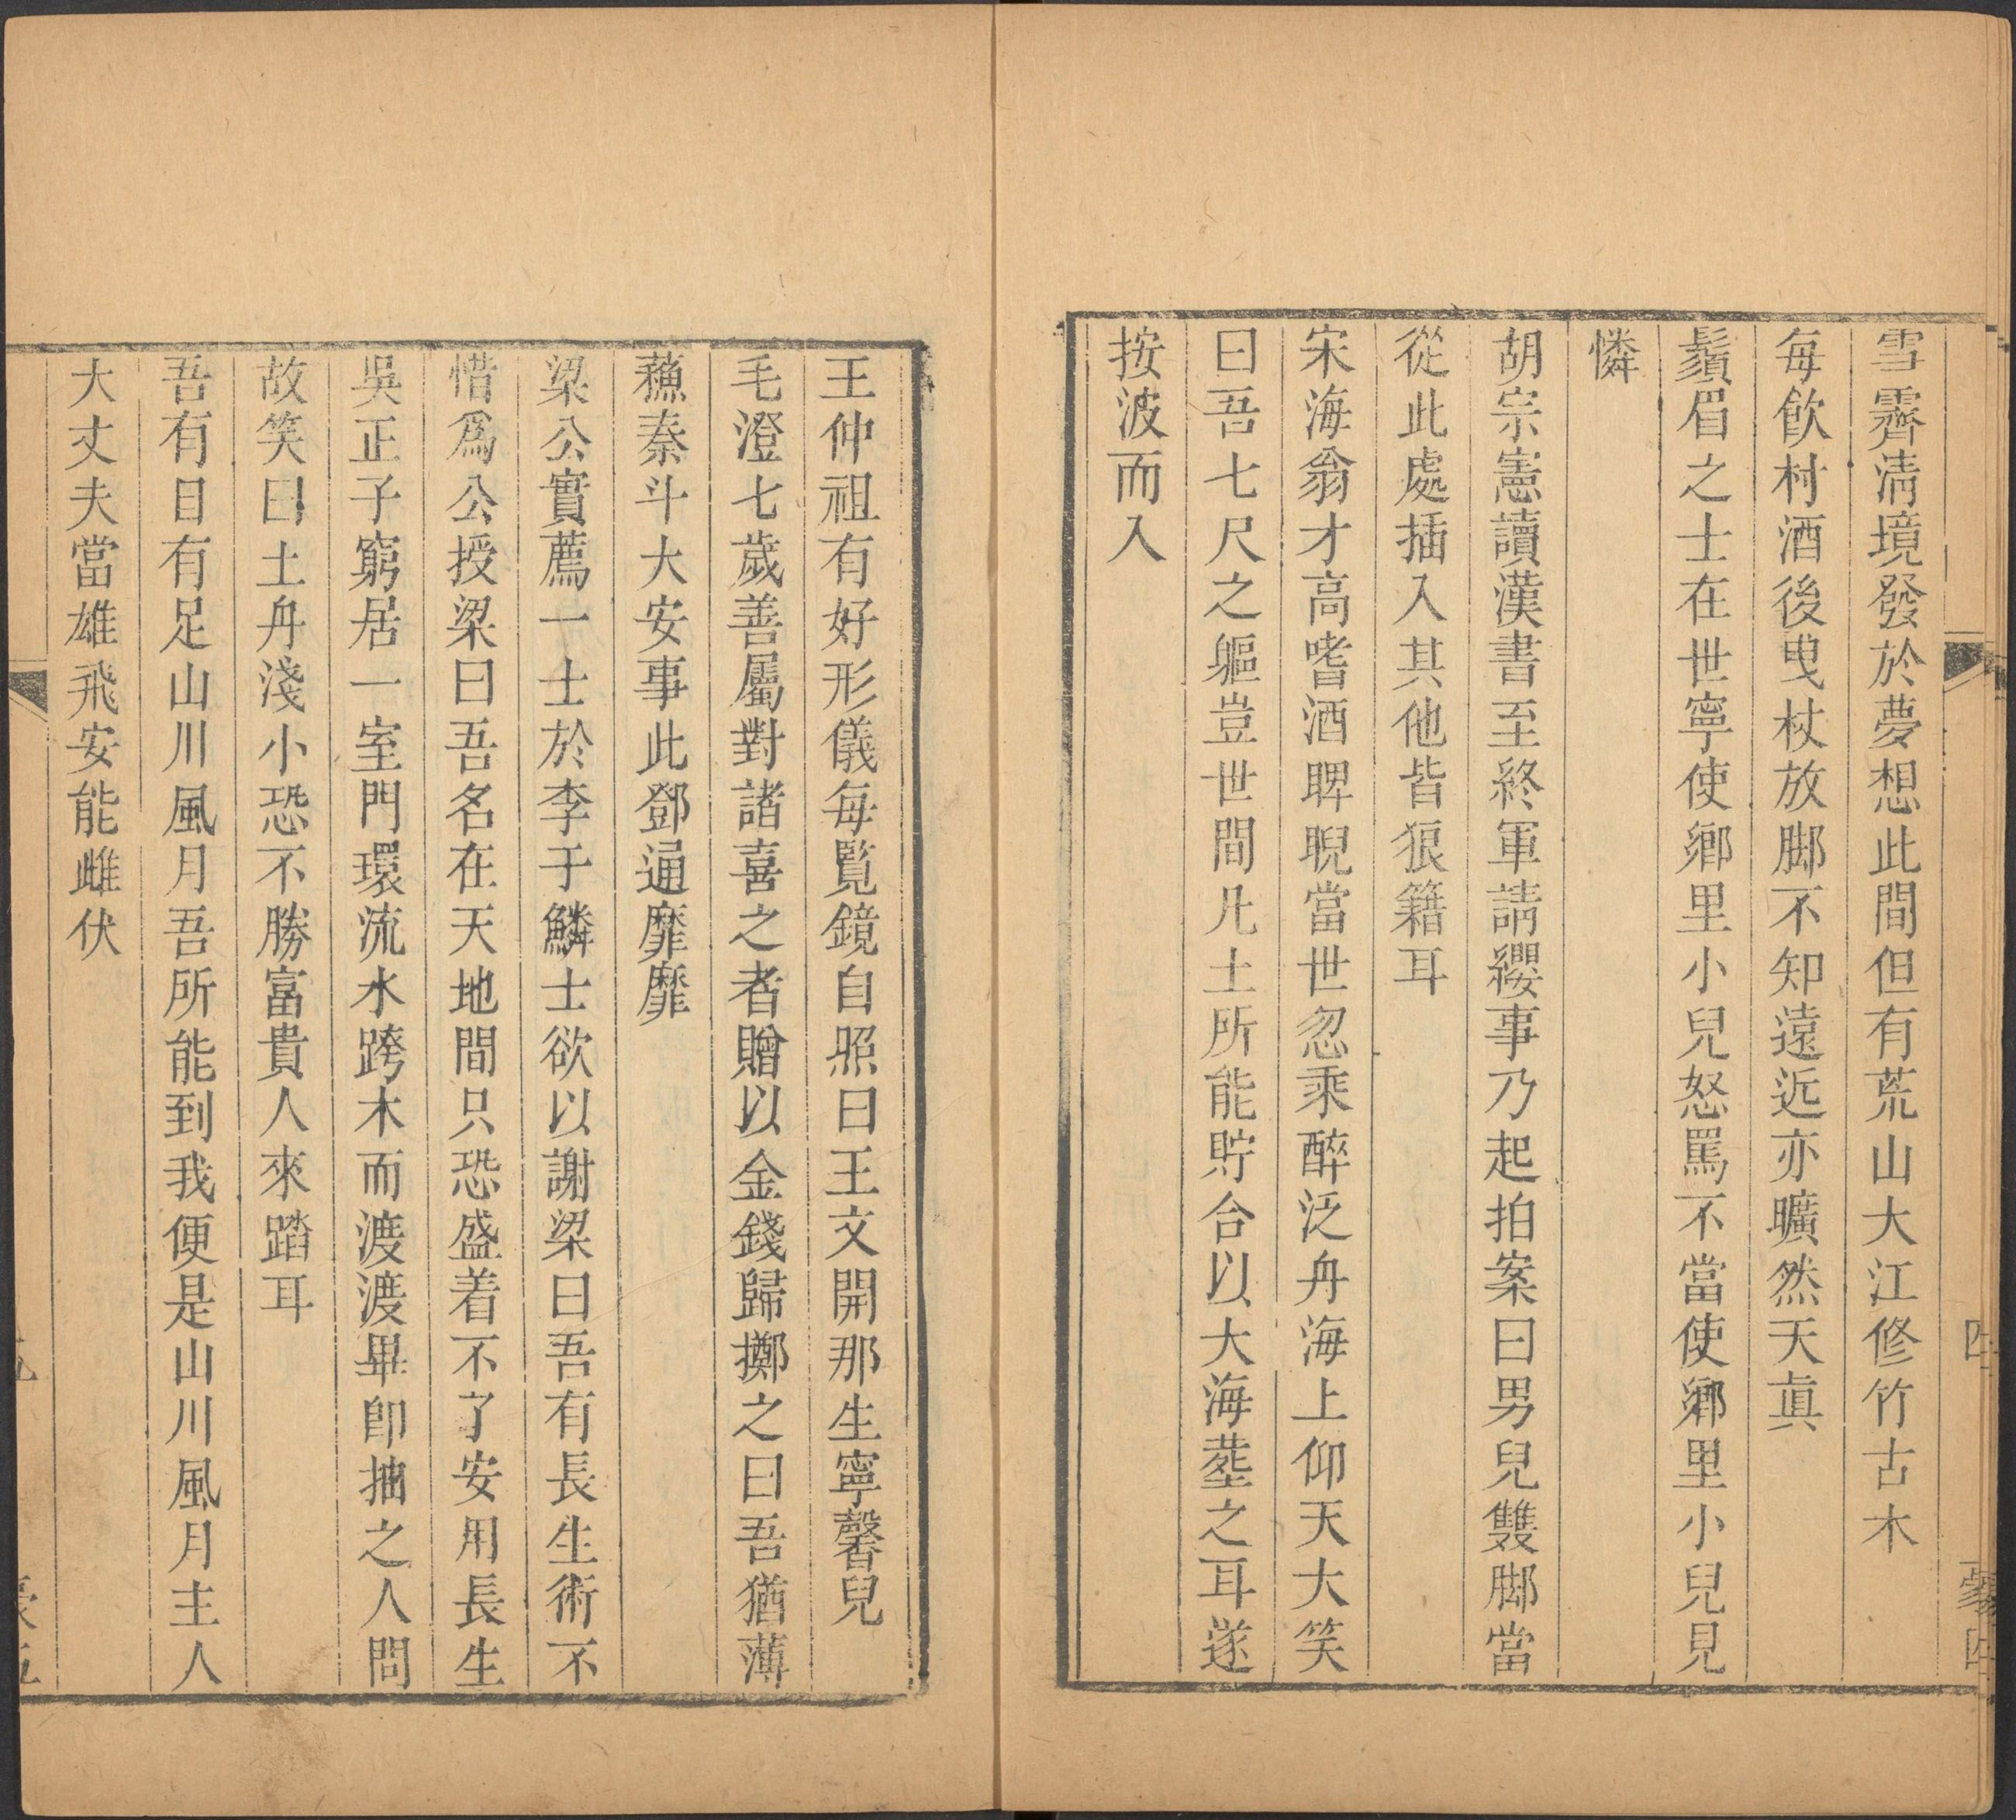 雪霽淸境發於夢想此間但有荒山大江修竹古木
每飮村酒後曳杖放脚不知遠近亦曠然天眞
鬚眉之士在世寧使鄉里小兒怒罵不當使鄉里小兒見
憐
胡宗憲讀漢書至終軍請纓事乃起拍案曰男兒雙脚當
從此處插入其他皆狼籍耳
宋海翁才高嗜酒睥睨當世忽乘醉泛舟海上仰天大笑
曰吾七尺之軀豈世間凡土所能貯合以大海葬之耳遂
按波而入
王仲祖有好形儀每覧鏡自照曰王文開那生寧馨兒
毛澄七歲善屬對諸喜之者贈以金錢歸擲之曰吾猶薄
蘓秦斗大安事此鄧通靡靡
梁公實薦一士於李于鱗士欲以謝梁曰吾有長生術不
惜爲公授梁曰吾名在天地間只恐盛着不了安用長生
吳正子窮居一室門環流水跨木而渡渡畢卽抽之人問
故笑曰土舟淺小恐不勝富貴人來踏耳
吾有目有足山川風月吾所能到我便是山川風月主人
大丈夫當雄飛安能雌伏